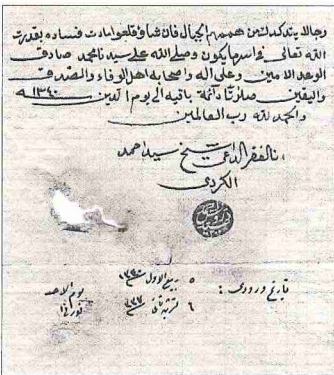 رجالا يتدكدك لهممهم الجبال فان شاؤ قلعوا مادت فساده بقدرت
الله تعالى في اسرع ما يكون وصلى الله على سيدنا محمد صادق
الوعد الامين وعلى اله واصحابه اهل الوفاء والصدق
واليقين صلوتا دائمة باقيه الى يوم الدين سنه ١٣٤٠
والحمد لله رب العالمين
الفقير الداعي شيخ سيد احمد
الكردي
تاريخ ورودى :
٥ ربيع الاول ١٣٤٠
٦ تشرين ثانى ٣٣٧
يوم الاحد